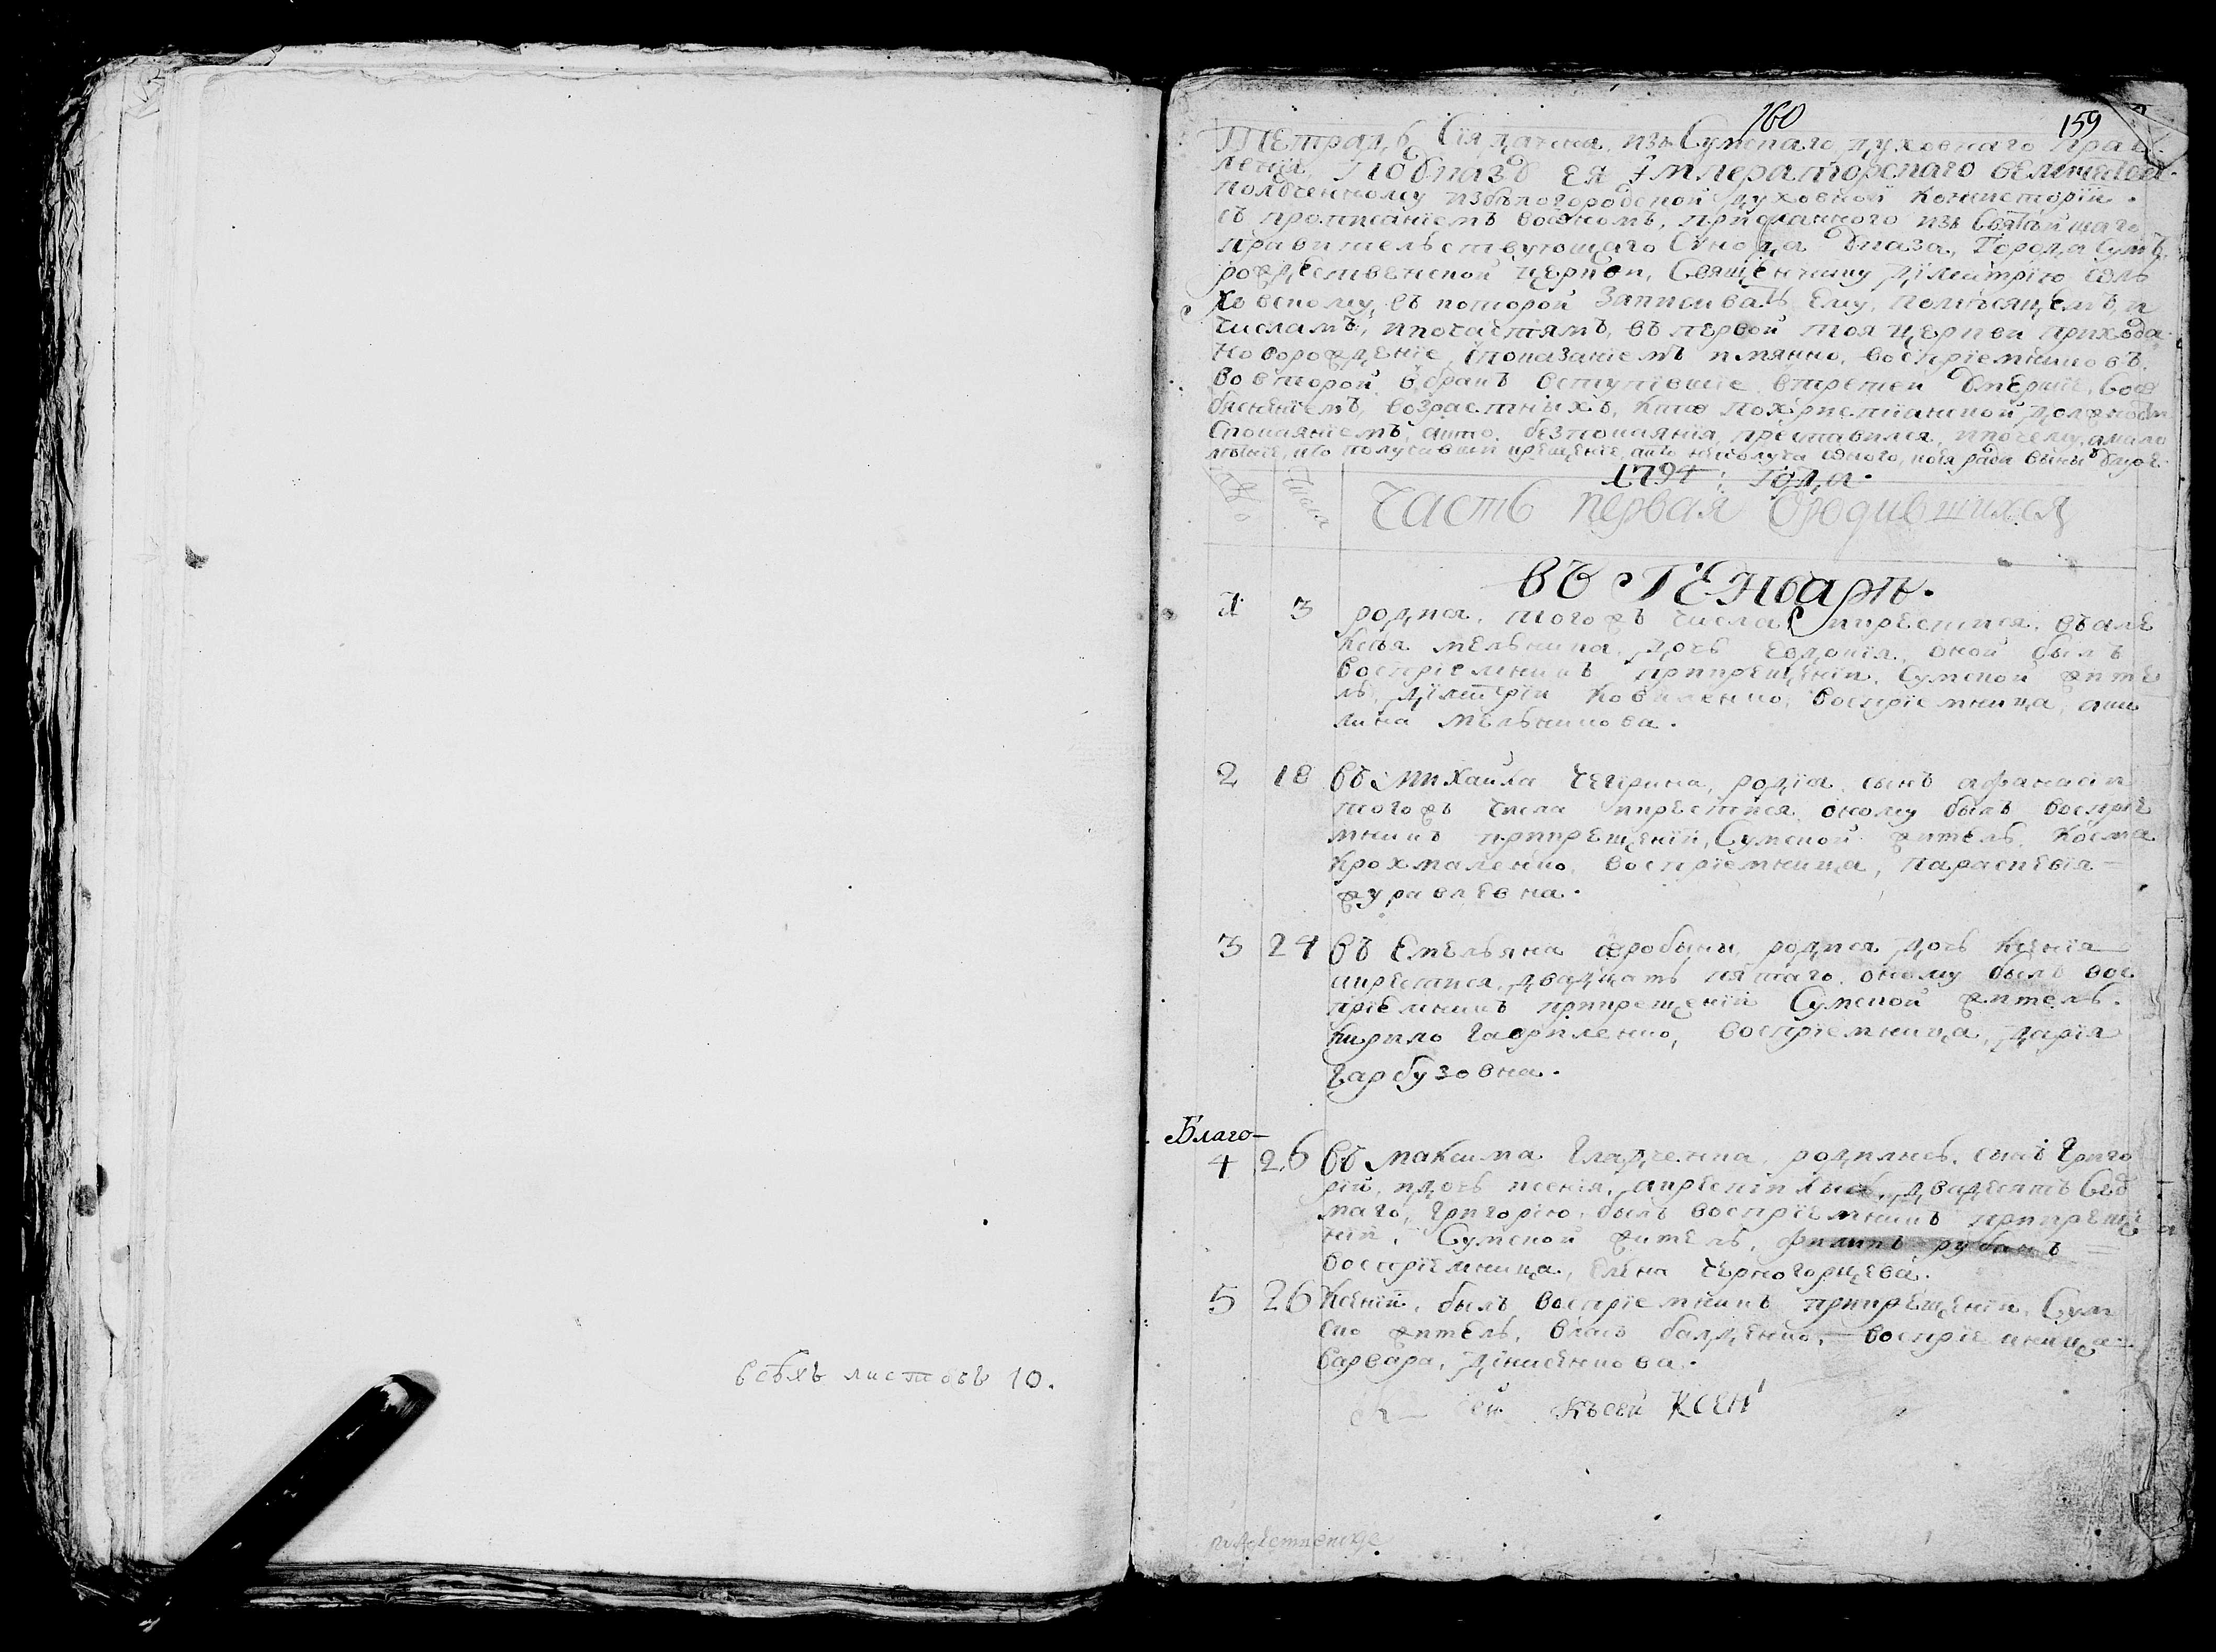 всѣхъ листовъ 10.
160
159
Тетрадь Сія данна изъ Сумскаго духовнаго прав
ленія, По Указу ея Імператорскаго величества
полученному изъ бѣлогородской духовной Консисторіи.
съ прописаніемъ во ономъ, присланного изъ Святѣйшаго
правительствующаго Сѵнода Указа, Города Сумъ,
рождественской церкви, Священнику Димитрію
въ которой Записывать ему, помѣсяцемъ, и
числамъ, и почастямъ, въ первой тоя церкви прихода
Новорожденіе, споказаніемъ имянно, воспріемниковъ.
во второй въ бракъ вступившіе втретей Умершіе,
возрастныхъ, кто похристианской должности
Спокаяніемъ, акто безпокаянія, преставился, ипочему, амало
получивши крещеніе,
1794: Года.
Числа
Часть первая Ородившихся
въ ГЕНварѣ.
1 3 родися, тогожъ числа икрестися, Уале
ксѣя мельника, дочь евдокія, оной былъ
воспріемникъ прикрещеніи, Сумской жите
ль, димитрій Коваленко, воспріемница, аки
лина мельникова.
2 18 въ михаила чегирина, родися, сынъ афанасій
тогожъ числа икрестися, оному былъ воспріе
мникъ прикрещеніи, Сумской житель, Косма
Крохмаленко, воспріемница, параскевія
журавлевна.
3 24 въ Емельяна жробыны, родися дочь Ксенія
икрестися, двадцать пятаго, оному былъ вос
пріемникъ прикрещеніи Сумской житель.
Кирило Гавриленко, воспріемница, дарія
Гарбузовна.
Благо-
4 26 въ максима Гладченка, родились, сынъ Григо
рій, идочь ксенія, икрестились, двадесять Сед
маго, Григорію, былъ воспріемникъ прикреще
ніи, Сумской житель, филипъ рубанъ
воспріемница, Елена черногорцева.
5 26 Ксеніи, былъ воспріемникъ прикрещеніи, Сум
ско житель, власъ балденко, воспріемница
варвара, денисенкова.
сей КСЕН